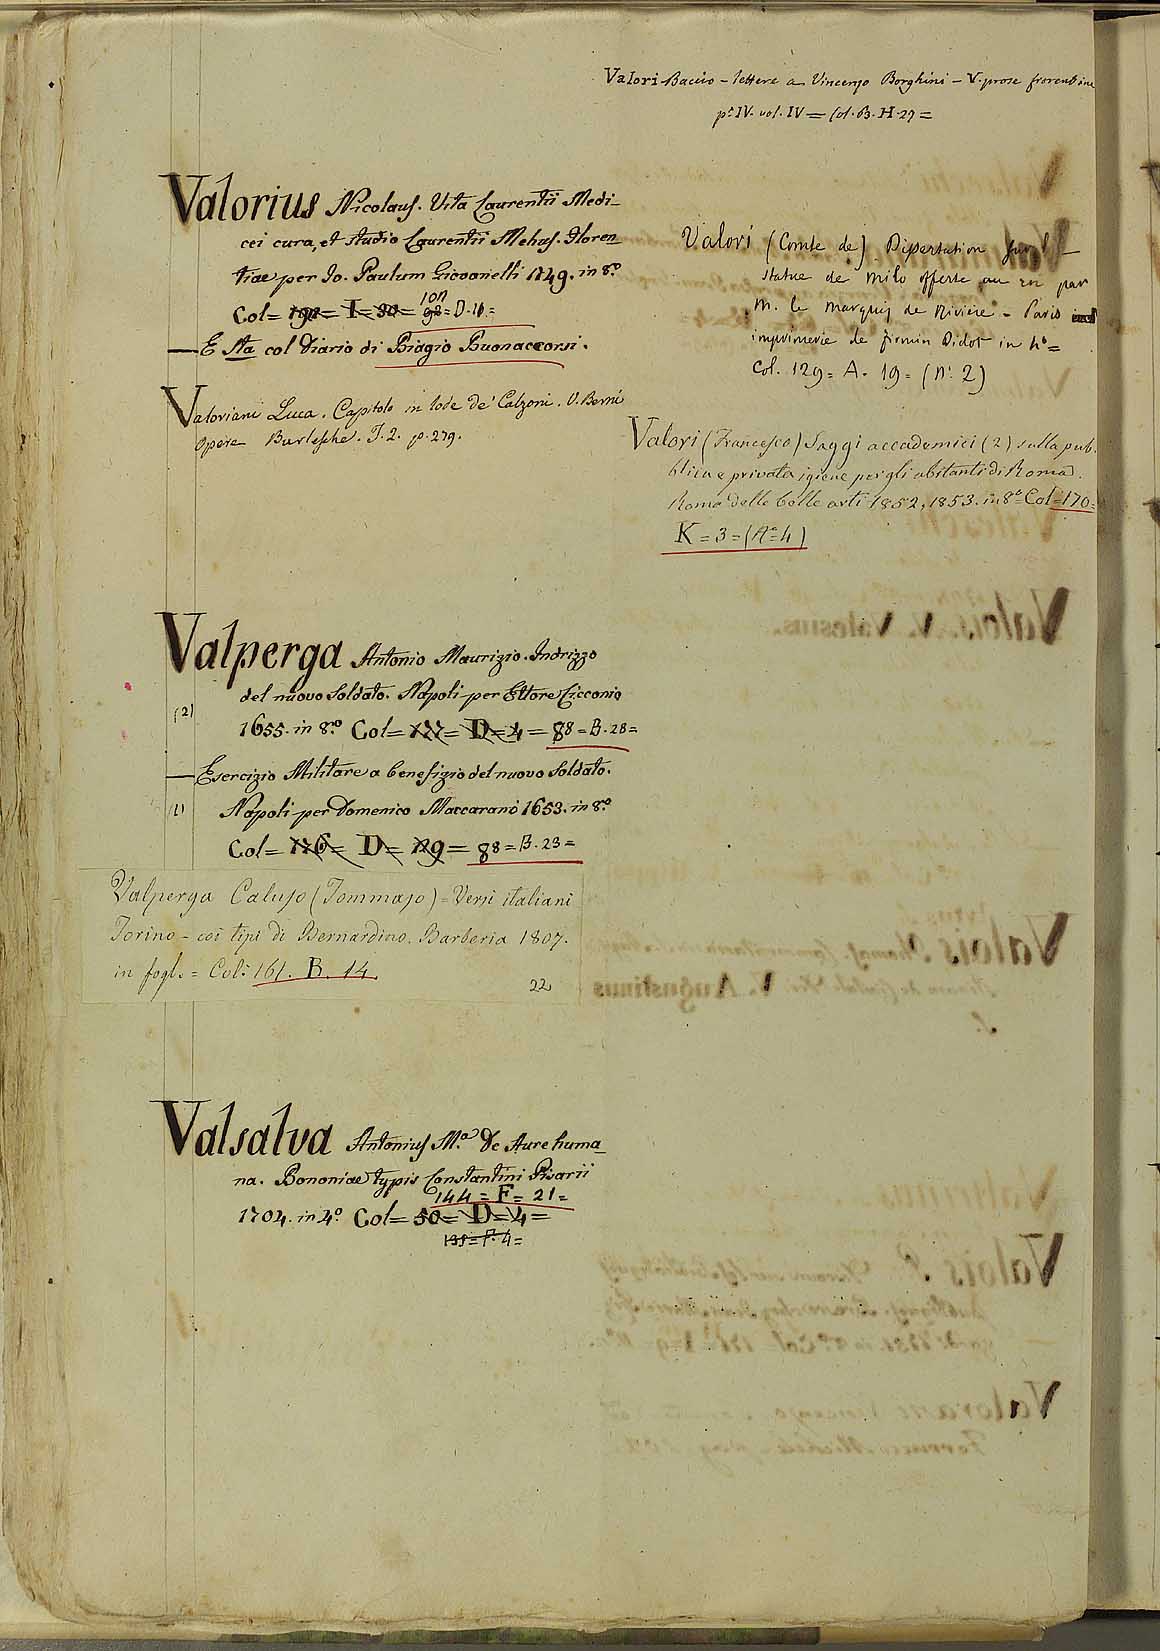 Valori Baccio - lettere a Vincenzo Borghini - V. prose fiorentine
pe. IV. vol. IV = Col. B. H. 27 =
Valorius Nicolaus. Vita Laurentii Medi-
cei cura, et studio Laurentii Mehus. Floren-
tiae per Jo. Paulum Giovanelli 1749. in 8.o
Col = I = 98 = D. 10. =
— E Sta col Diario di Biagio Buonaccorsi.
Valoriani Luca. Capitolo in lode de' Calzoni. V. Berni
Opere Burlesche. T. 2. p. 279.
Valori (Comte de) Dissertation sur la
statue de Milo offerte au Roi par
M. le Marquis de Riviere - Paris
imprimerie de firmin Didot in 4o =
Col. 129 = A. 19 = (n. 2)
Valori (Francesco) Saggi accademici (2) sulla pub-
blica e privata igiene per gli abitanti di Roma.
Roma delle belle arti 1852, 1853. in 8o = Col = 170 =
K = 3 = (No = 4)
Valperga Antonio Maurizio. Indrizzo
del nuovo Soldato. Napoli per Ettore Cicconio
(2)
1655. in 8.o Col = 177 = D = 4 = 88 = B. 28 =
— Esercizio Militare a benefizio del nuovo Soldato.
(1)
Napoli per Domenico Maccarano 1653. in 8.o
Col = 176 = D = 129 = 88 = B. 23 =
Valperga Caluso (Tommaso) = Versi italiani
Torino - coi tipi di Bernardino Barberia 1807.
in fogl. = Col: 161. B. 14.
22
Valsalva Antonius M.a De Aure huma-
na. Bononiae typis Constantini Pisarii
144 = F = 21 =
1704. in 4.o Col = 50 = D = 4 =